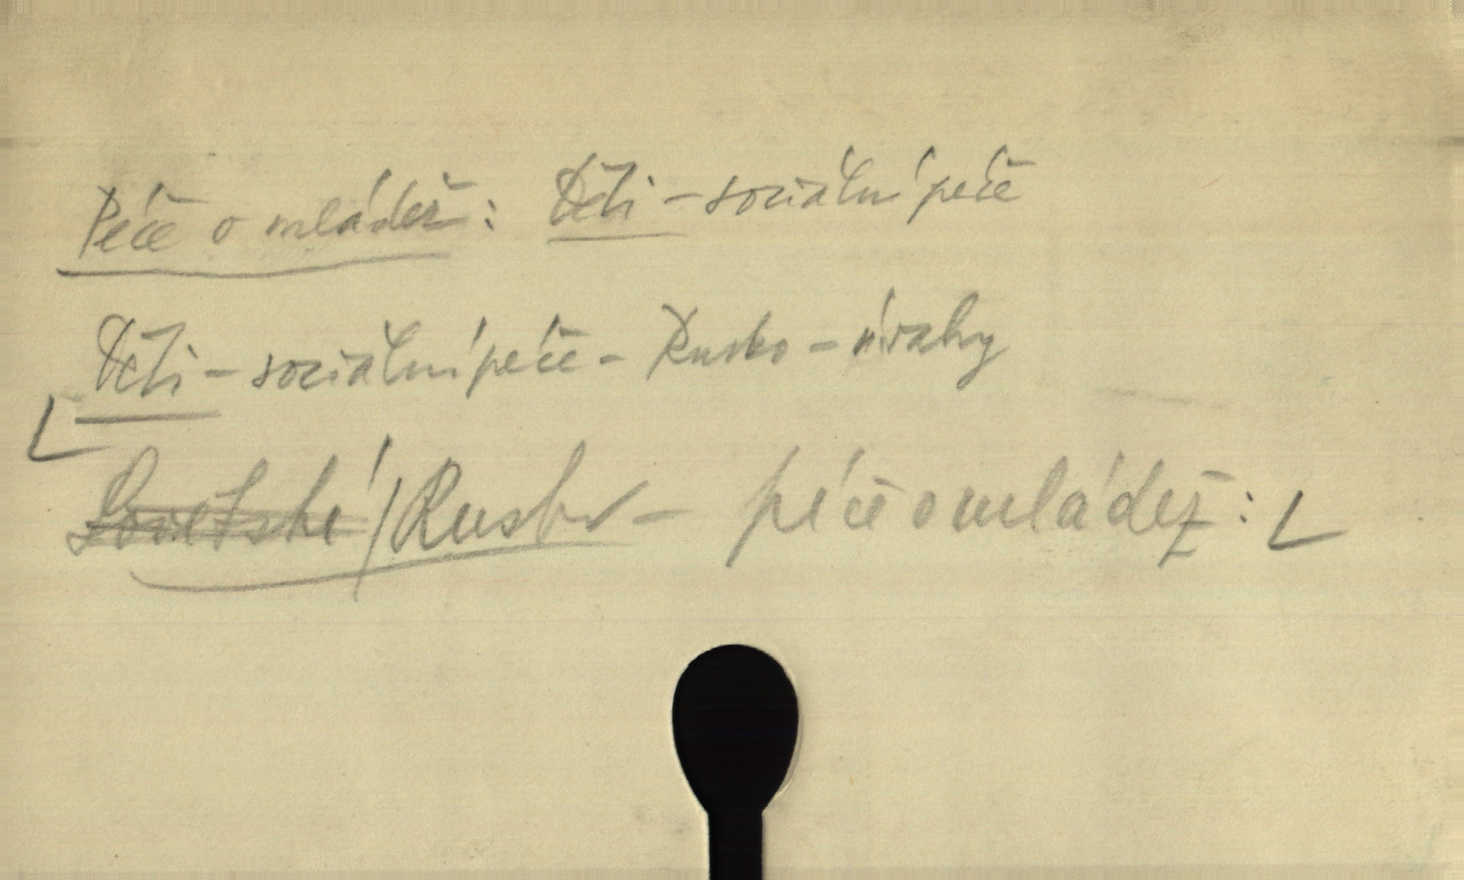 Péče o mládež: Děti - sociální péče
Děti - sociální péče - Rusko - úvahy
Sovětské / Rusko - péče o mládež: